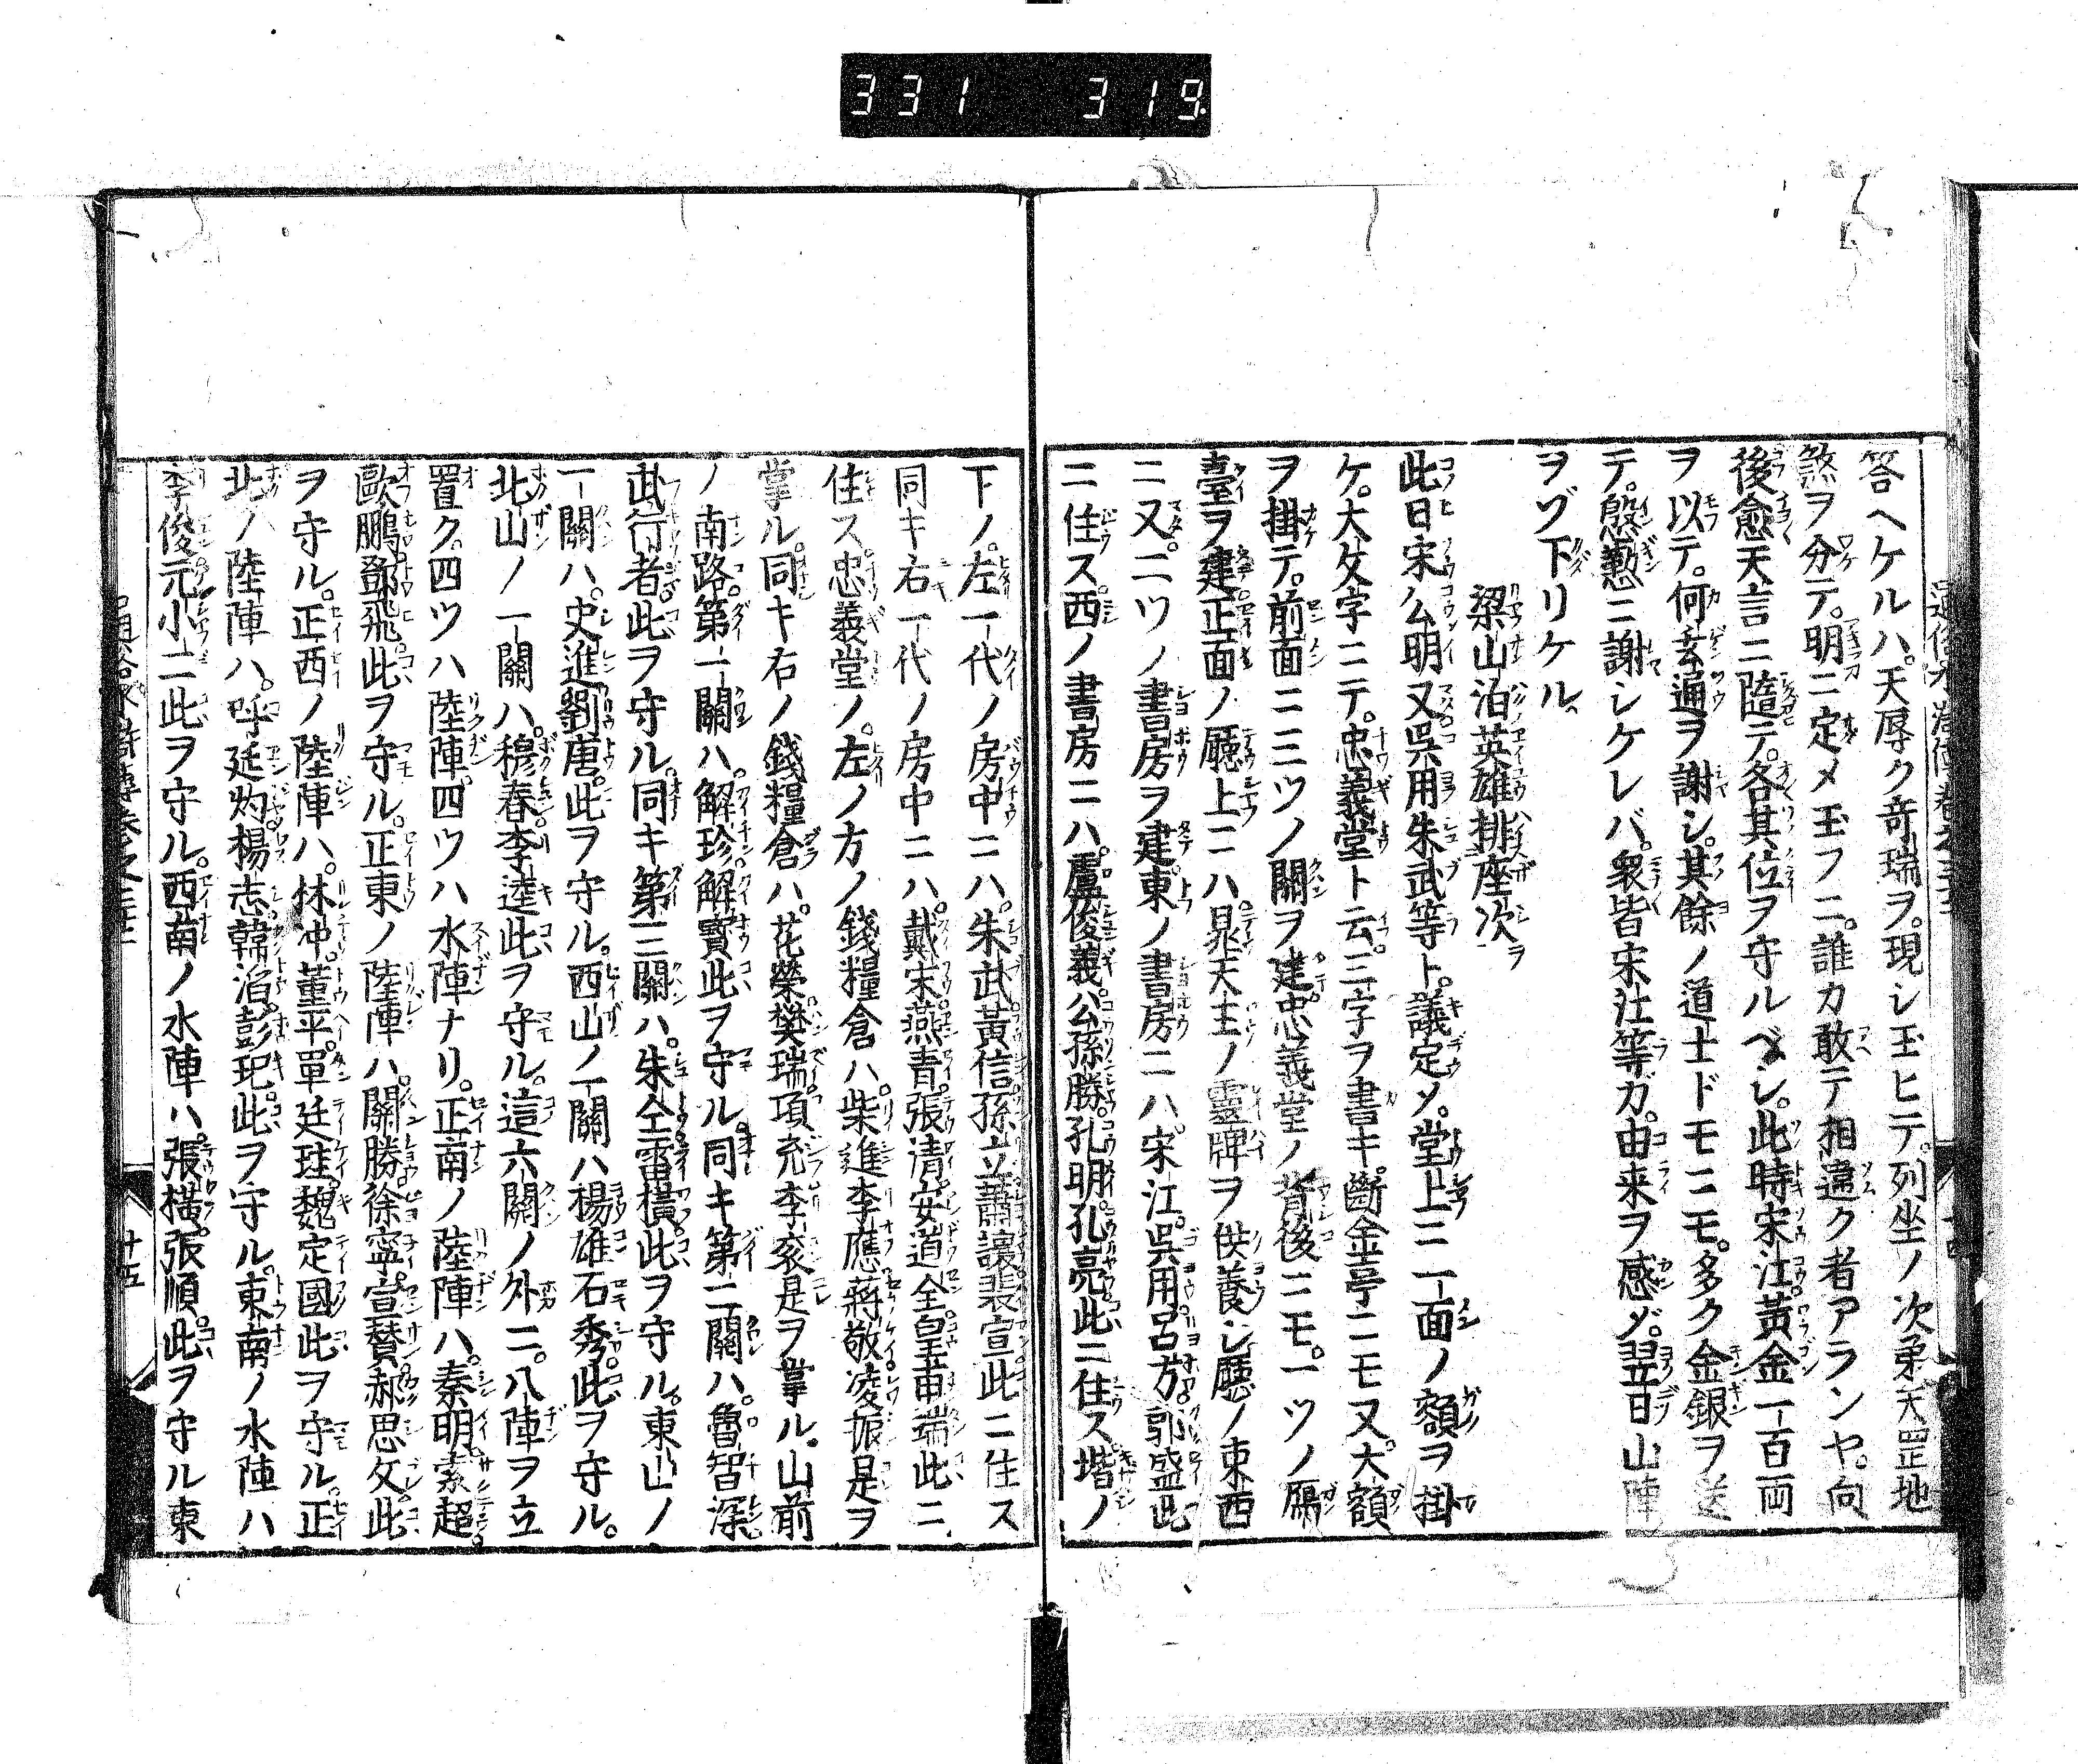 331 319
答ヘケルハ。天辱ク奇瑞ヲ。現シ玉ヒテ。列坐ノ次第天罡地
煞ヲ分テ。明ニ定メ玉フニ。誰カ敢テ相違ク者アランヤ。向
後愈天言ニ隨テ。各其位ヲ守ルベシ。此時宋江。黃金一百両
ヲ以テ。何玄通ヲ謝シ。其餘ノ道士ドモニモ。多ク金銀ヲ送
テ。慇懃ニ謝シケレバ。衆皆宋江等ガ。由来ヲ感ジ。翌日山陣
ヲゾ下リケル。
梁山泊英雄排座次ヲ
此日宋公明又呉用朱武等ト。議定ソ。堂上ニ一面ノ額ヲ掛
ケ。大文字ニテ。忠義堂ト云。三字ヲ書キ。斷金亭ニモ又。大額
ヲ掛テ。前面ニ三ツノ關ヲ建。忠義堂ノ背後ニモ。一ツノ鴈
臺ヲ建。正面ノ廳上ニハ。晁天王ノ靈牌ヲ供養シ。廳ノ東西
ニ又。二ツノ書房ヲ建。東ノ書房ニハ。宋江。呉用。呂方。郭盛此
ニ住ス。西ノ書房ニハ。盧俊義。公孫勝。孔明。孔亮。此ニ住ス。堦ノ
下ノ。左一代ノ房中ニハ。朱武。黃信。孫立。蕭讓。裴宣。此ニ住ス
同キ右一代ノ房中ニハ。戴宋。燕青。張清。安道全。皇甫端。此ニ
住ス。忠義堂ノ。左ノ方ノ錢糧倉ハ。柴進。李應。蔣敬。凌振。是ヲ
掌ル。同キ右ノ錢糧倉ハ。花榮。樊瑞。項充。李袞。是ヲ掌ル。山前
ノ南路。第一關ハ。解珍。解寳。此ヲ守ル。同キ第二關ハ。魯智深
武行者。此ヲ守ル。同キ第三關ハ。朱仝。雷橫。此ヲ守ル。東山ノ
一關ハ。史進。劉唐。此ヲ守ル。西山ノ一關ハ楊雄。石秀。此ヲ守ル。
北山ノ一關ハ。穆春。李逵。此ヲ守ル。這六關ノ外ニ。八陣ヲ立
置ク。四ツハ陸陣。四ツハ水陣ナリ。正南ノ陸陣ハ。秦明。索超。
歐鵬。鄧飛。此ヲ守ル。正東ノ陸陣ハ。關勝。徐寧。宣賛。郝思文。此
ヲ守ル。正西ノ陸陣ハ。林冲。董平。單廷珪。魏定國。此ヲ守ル。正
北ノ陸陣ハ。呼延灼。楊志。韓滔。彭玘。此ヲ守ル。東南ノ水陣ハ
李俊。元小二。此ヲ守ル。西南ノ水陣ハ。張橫。張順。此ヲ守ル東
十五